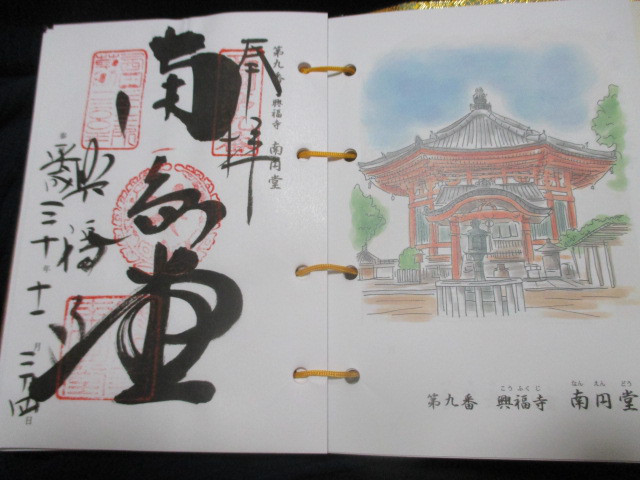 奉拝
第九番 興福寺 南円堂
南円堂
興福寺
三十年十一月二四日
こうふくじ なんえんどう
第九番 興福寺 南円堂